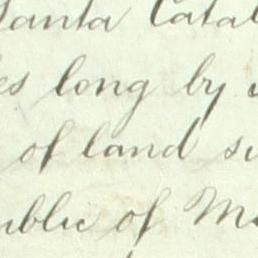 Santa Catal
es long by
of land si
ublic of Me